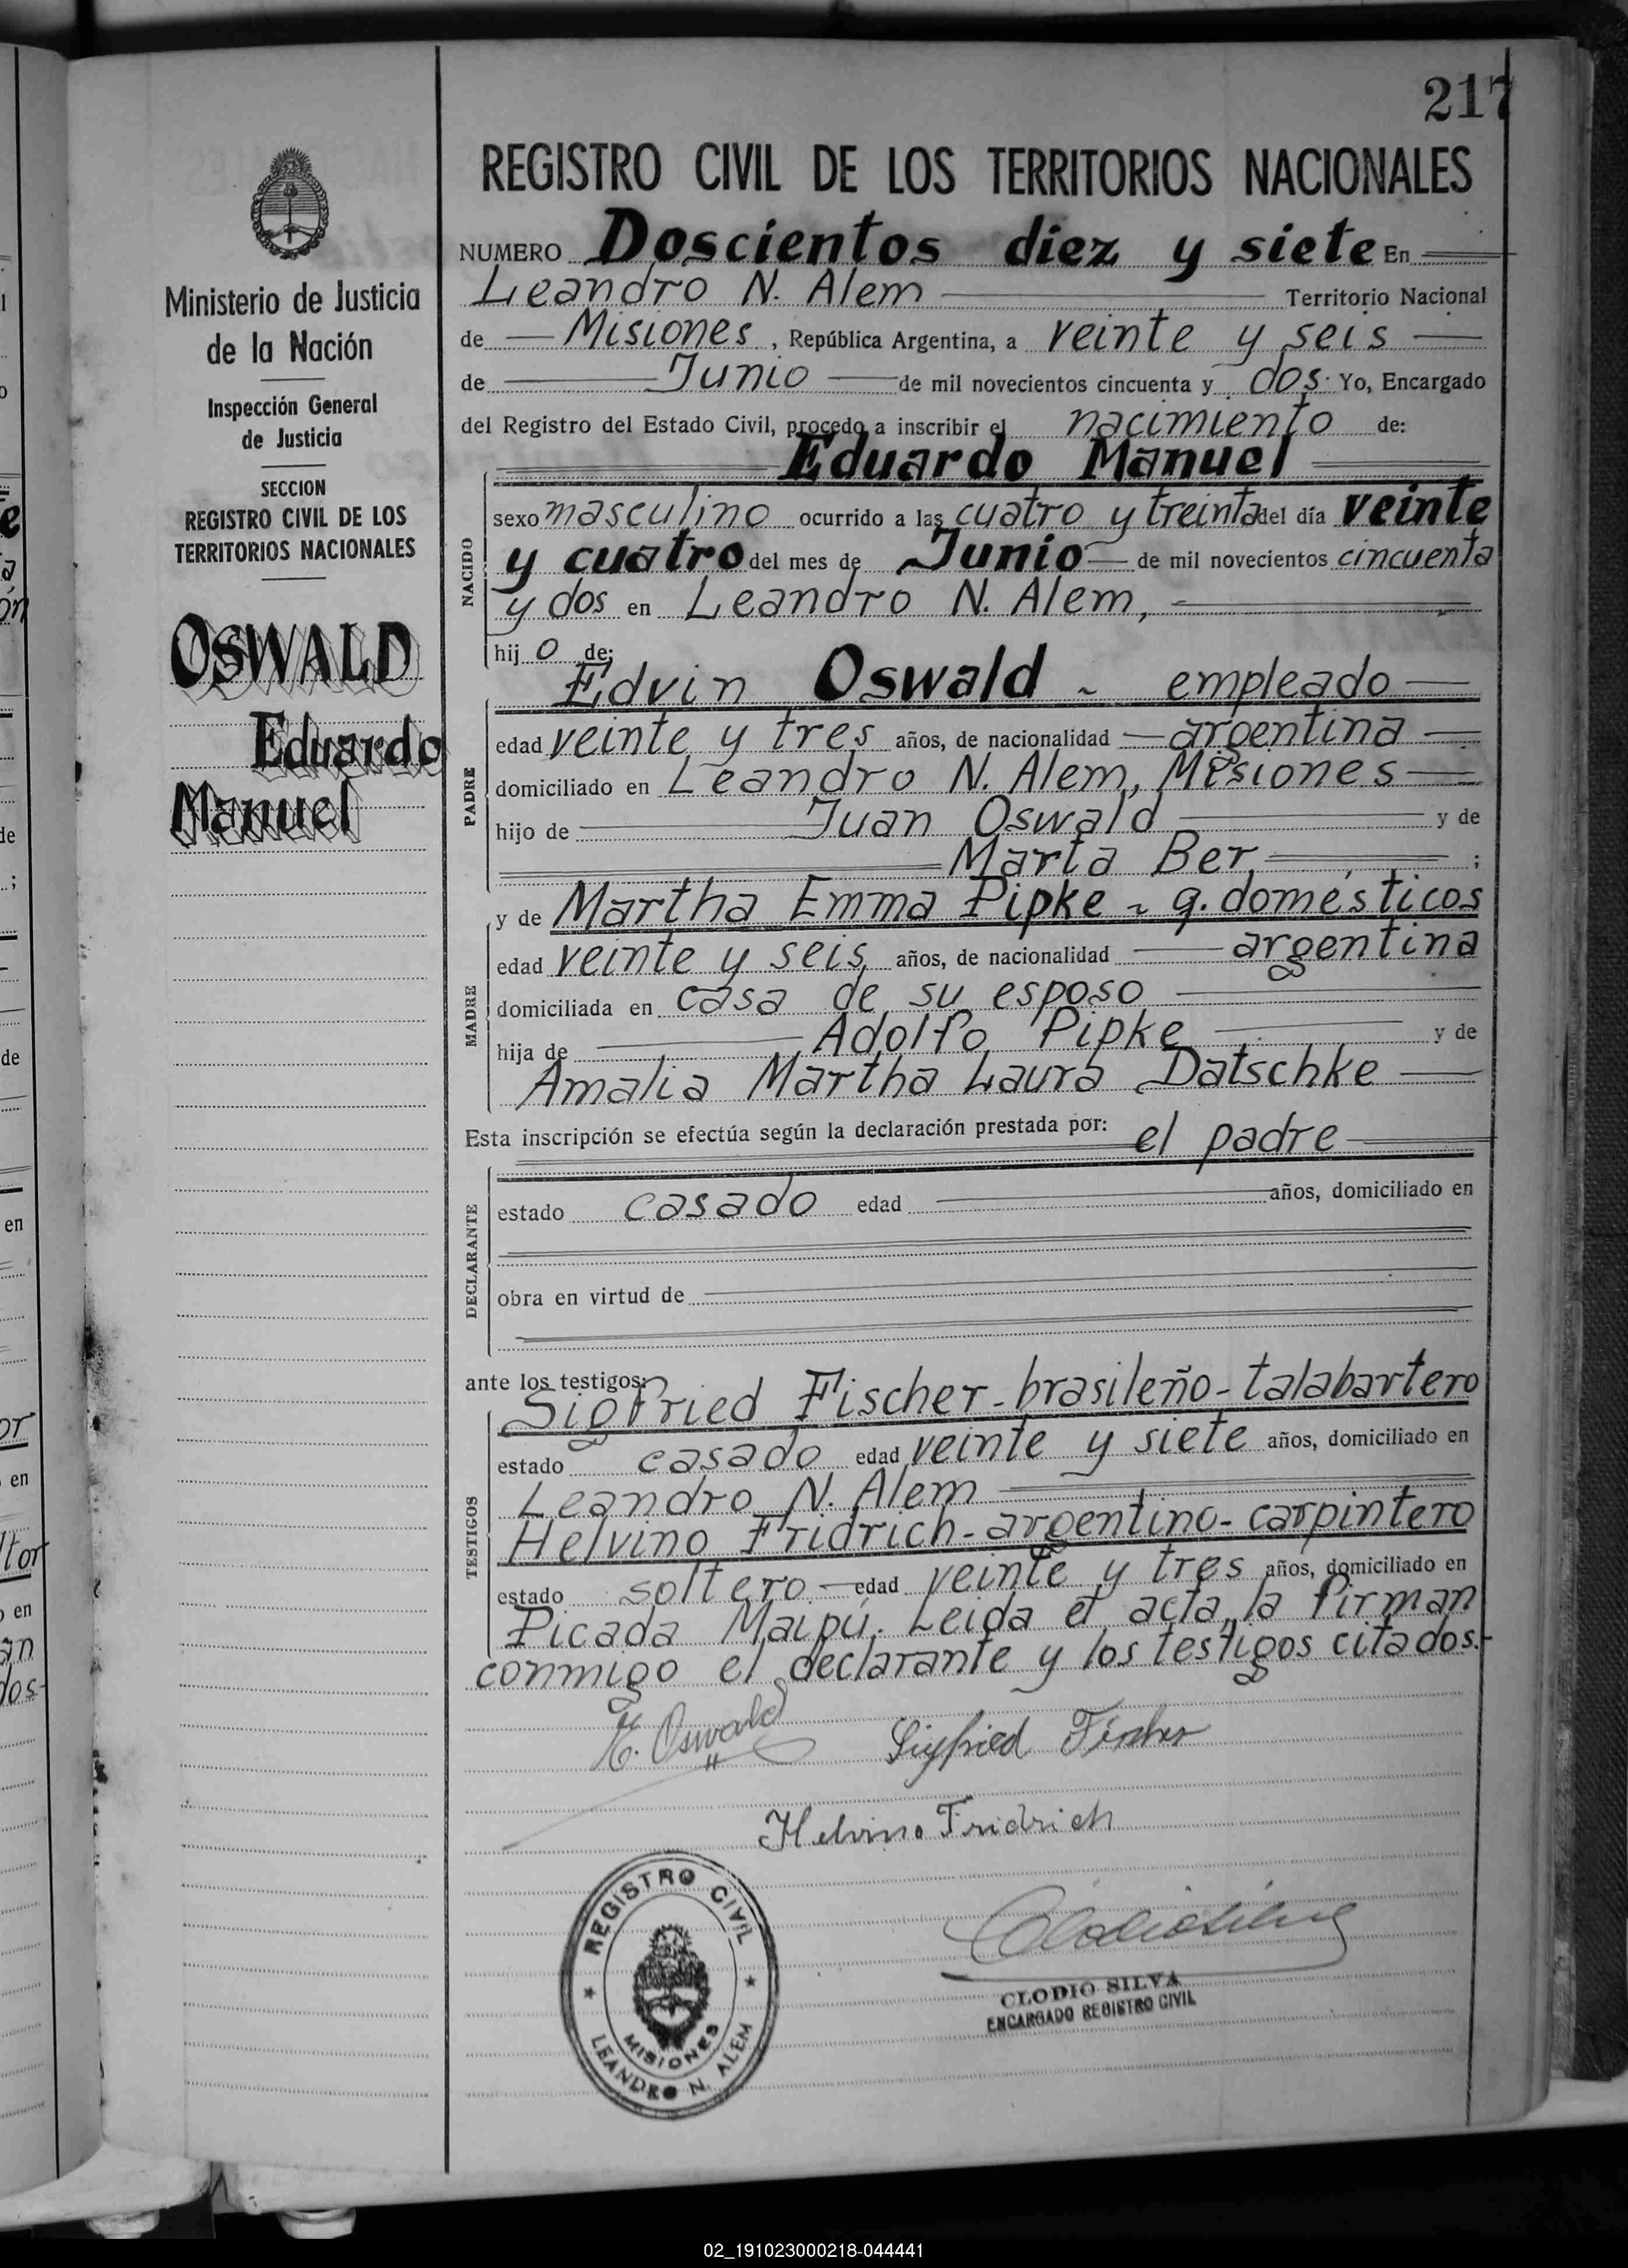 217
REGISTRO CIVIL DE LOS TERRITORIOS NACIONALES
Ministerio de Justicia
de la Nación
Inspección General
de Justicia
SECCION
REGISTRO CIVIL DE LOS
TERRITORIOS NACIONALES
OSWALD
Eduardo
Manuel
NUMERO Doscientos diez y siete En
Leandro N. Alem Territorio Nacional
de Misiones, República Argentina, a veinte y seis
de Junio de mil novecientos cincuenta y dos. Yo, Encargado
del Registro del Estado Civil, procedo a inscribir el nacimiento de:
Eduardo Manuel
NACIDO
sexo masculino ocurrido a las cuatro y treinta del día veinte
y cuatro del mes de Junio de mil novecientos cincuenta
y dos en Leandro N. Alem,
hijo de:
Edvin Oswald - empleado
PADRE
edad veinte y tres años, de nacionalidad argentina
domiciliado en Leandro N. Alem, Misiones
hijo de Juan Oswald y de
Marta Ber, ;
y de Martha Emma Pipke - q. domésticos
MADRE
edad veinte y seis, años, de nacionalidad argentina
domiciliada en casa de su esposo
hija de Adolfo Pipke y de
Amalia Martha Laura Datschke
Esta inscripción se efectúa según la declaración prestada por: el padre
DECLARANTE
estado casado edad años, domiciliado en
obra en virtud de
ante los testigos:
Sigfried Fischer - brasileño - talabartero
TESTIGOS
estado casado edad veinte y siete años, domiciliado en
Leandro N. Alem
Helvino Fridrich - argentino - carpintero
estado soltero - edad veinte y tres años, domiciliado en
Picada Maipú. Leida el acta, la firman
conmigo el declarante y los testigos citados.-
E. Oswald
Sigfried Fischer
Helvino Fridrich
REGISTRO CIVIL
MISIONES
LEANDRO N. ALEM
Clodio Silva
CLODIO SILVA
ENCARGADO REGISTRO CIVIL
02_191023000218-044441